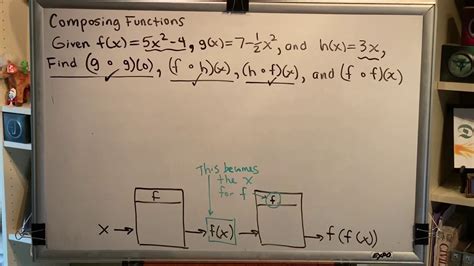 Composing Functions
Given f(x)=5x²-4, g(x)=7-½x², and h(x)=3x,
Find (g ∘ g)(0), (f ∘ h)(x), (h ∘ f)(x), and (f ∘ f)(x)
This becomes
the x
for f
f
f
x → → f(x) → → f(f(x))
EXPO